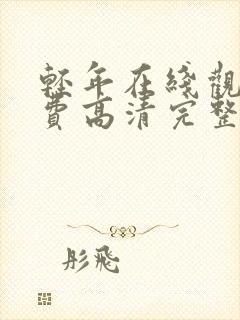 輕年在綫觀
費高清完整
彤飛